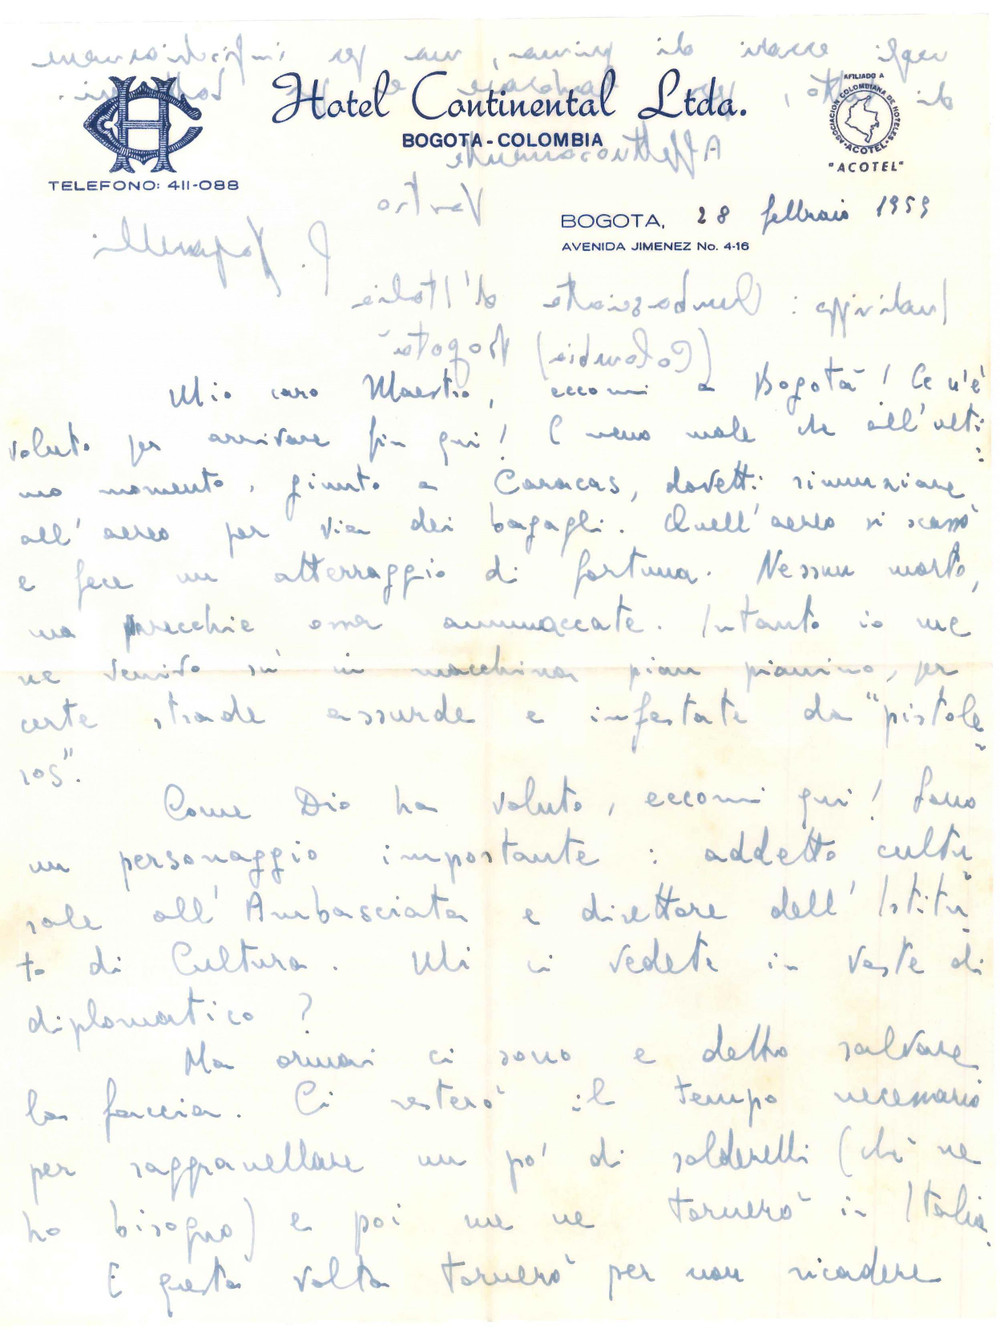 Hotel Continental Ltda.
BOGOTA - COLOMBIA
TELEFONO: 411-088
AFILIADO A
ASOCIACION COLOMBIANA DE HOTELES
ACOTEL
"ACOTEL"
BOGOTA, 28 febbraio 1959
AVENIDA JIMENEZ No. 4-16
Mio caro Maestro, eccomi a Bogotà! Ce n'è
voluto per arrivare fin qui! E meno male che all'ulti-
mo momento, giunto a Caracas, dovetti rinunziare
all'aereo per via dei bagagli. Quell'aereo si scassò
e fece un atterraggio di fortuna. Nessun morto,
ma parecchie ossa ammaccate. Intanto io me
ne venivo su in macchina pian pianino, per
certe strade assurde e infestate da "pistole-
ros".
Come Dio ha voluto, eccomi qui! Sono
un personaggio importante: addetto cultu-
rale all'Ambasciata e direttore dell'Istitu-
to di Cultura. Mi ci vedete in veste di
diplomatico?
Ma ormai ci sono e debbo salvare
la faccia. Ci resterò il tempo necessario
per raggranellare un po' di solderelli (chè ne
ho bisogno) e poi me ne tornerò in Italia.
E questa volta tornerò per non ricadere
negli errori di prima, ma per
di tutto,
Affettuosamente
Vostro
Indirizzo: Ambasciata d'Italia
(Colombia) Bogotà